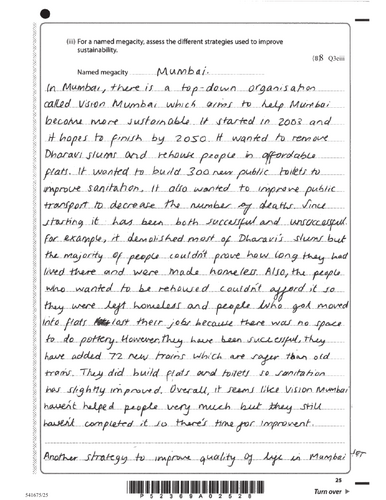 (ii) For a named megacity, assess the different strategies used to improve
sustainability.
(8) Q3eiii
Named megacity Mumbai.
In Mumbai, there is a top-down organisation
called Vision Mumbai which aims to help Mumbai
become more sustainable. It started in 2003 and
it hopes to finish by 2050. It wanted to remove
Dharavi slums and rehouse people in affordable
flats. It wanted to build 300 new public toilets to
improve sanitation. It also wanted to improve public
transport to decrease the number of deaths. Since
starting it has been both successful and unsuccessful.
For example, it demolished most of Dharavi's slums but
the majority of people couldn't prove how long they had
lived there and were made homeless. Also, the people
who wanted to be rehoused couldn't afford it so
they were left homeless and people who got moved
into flats lost their jobs because there was no space
to do pottery. However, They have been successful, they
have added 72 new trains which are safer than old
trains. They did build flats and toilets so sanitation
has slightly improved. Overall, it seems like Vision Mumbai
haven't helped people very much but they still
haven't completed it so there's time for improvent.
Another strategy to improve quality of life in Mumbai
25
S41675/25
P52369A02528
Turn over